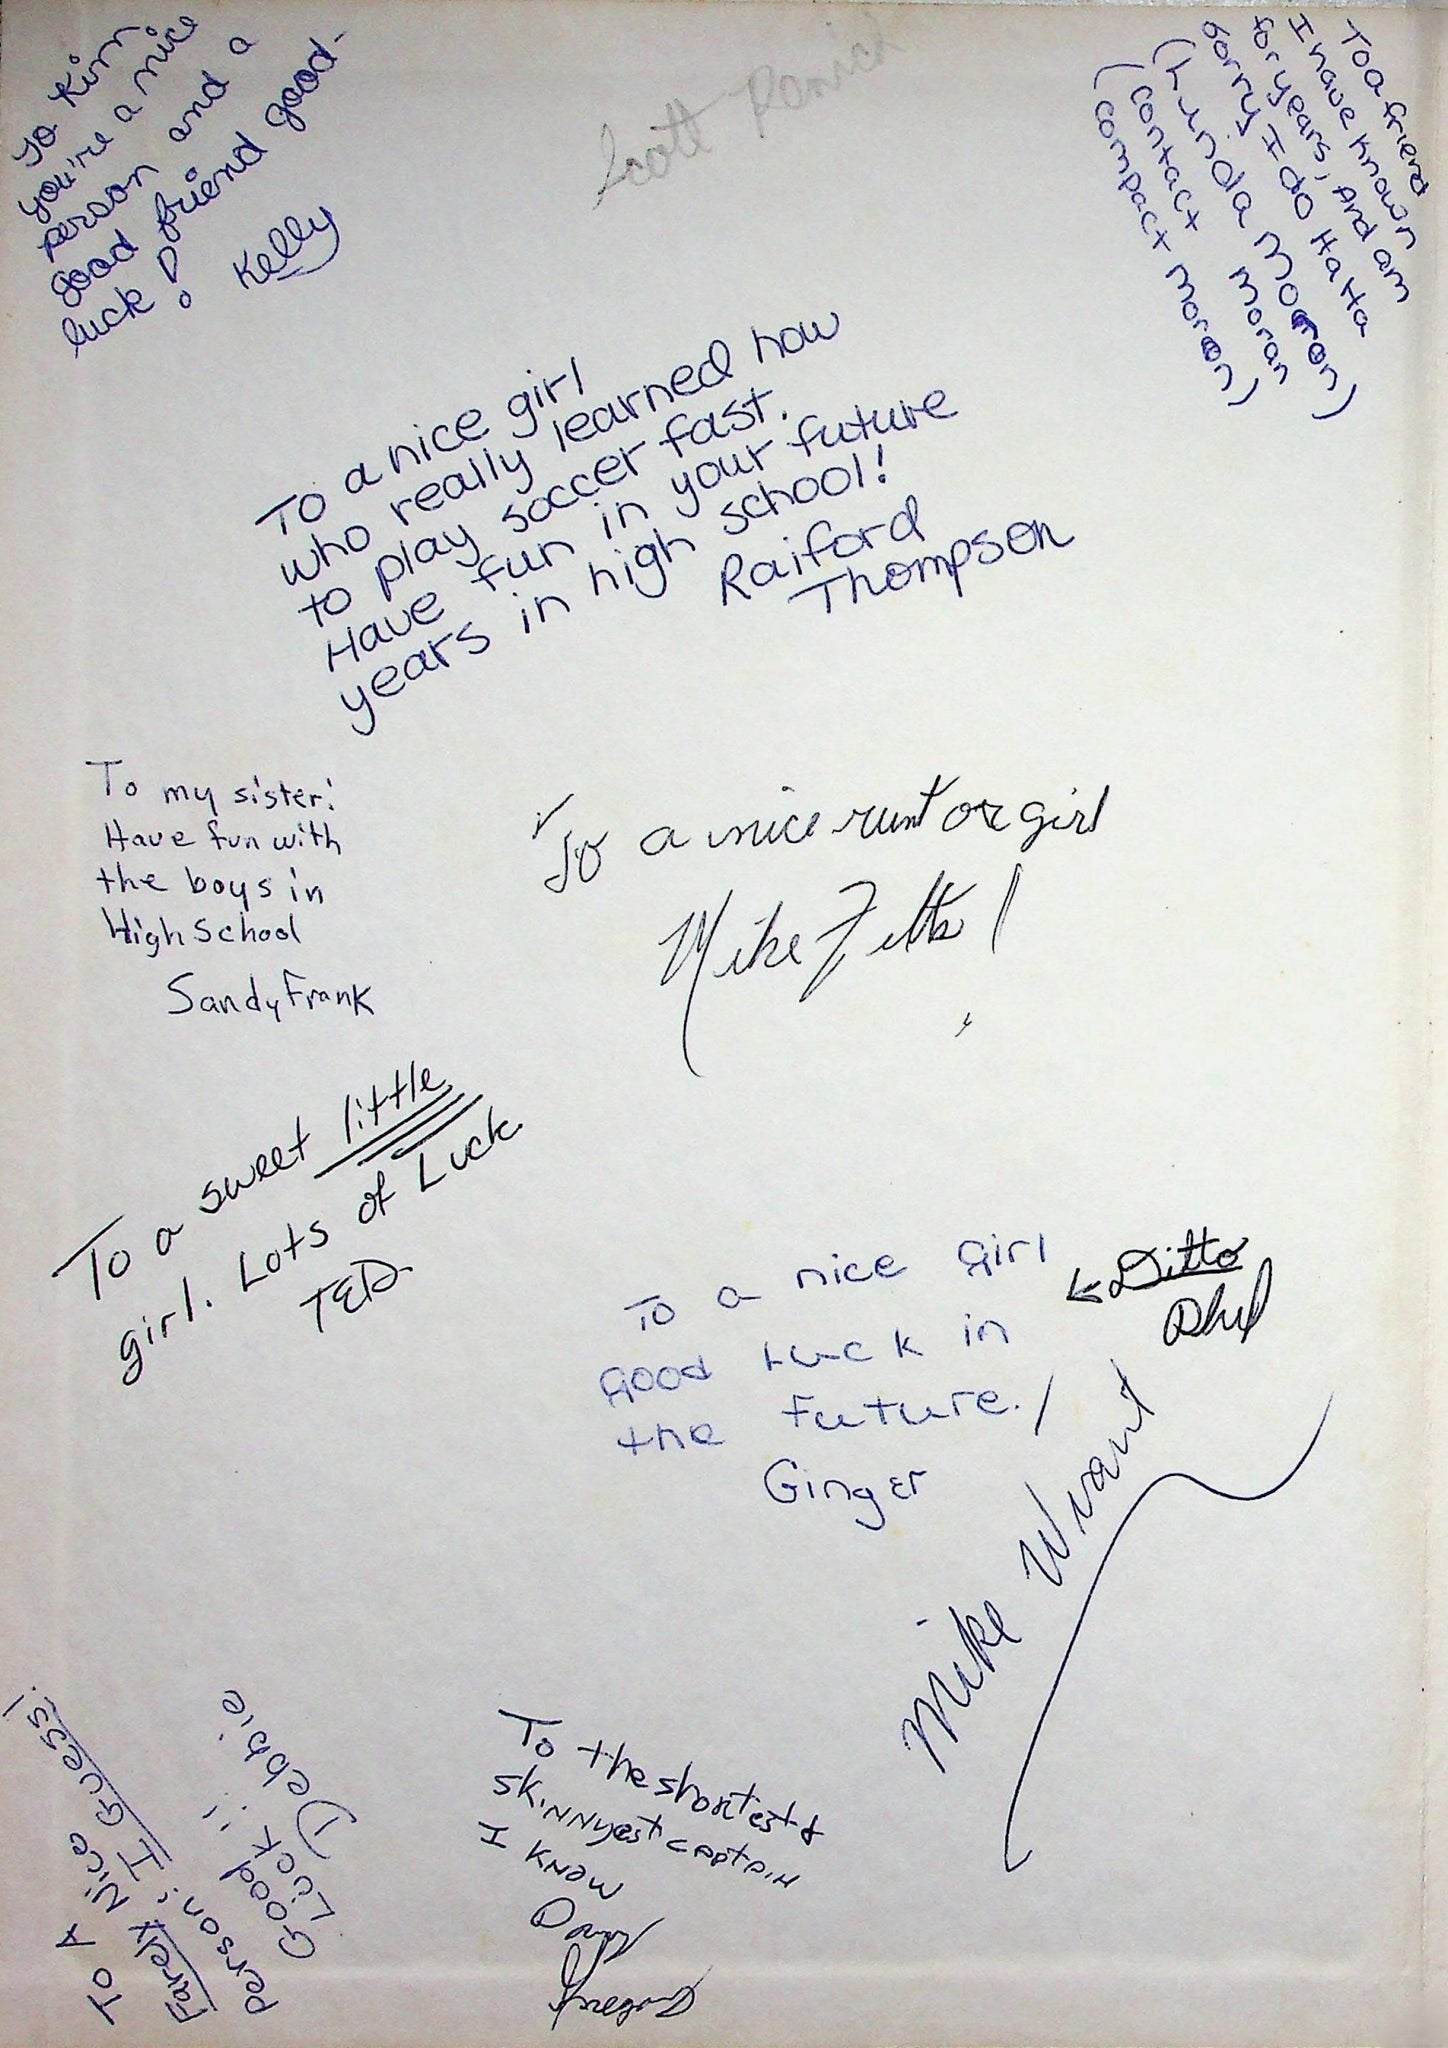 To Kim
you're a nice
person and a
good friend good-
luck!
Kelly
Scott
Too a friend
I have known
for years, And am
sorry I do Ha Ha
(Linda Moron)
(contact moran
(compact moron)
To a nice girl
who really learned how
to play soccer fast.
Have fun in your future
years in high school!
Raiford
Thompson
To my sister!
Have fun with
the boys in
High School
Sandy Frank
To a nice runt or girl
Mike
To a sweet little
girl. Lots of Luck
TED
To a nice Girl
Good Luck in
the future.
Ginger
← Ditto
Phil
Mike
To A Nice
Farely, I Guess!
Person!
Good
Luck!!
Debbie
To the shortest &
skinnyest captain
I know